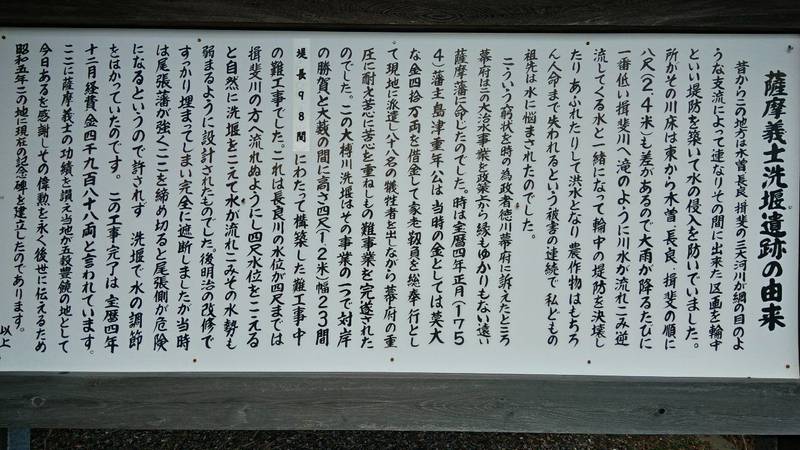 薩摩義士洗堰遺跡の由来
昔からこの地方は木曽、長良、揖斐の三大河川が網の目のよ
うな支流によって連なりその間に出来た区画を輪中
といい堤防を築いて水の侵入を防いていました。
所がその川床は東から木曽、長良、揖斐の順に
八尺(2.4米)も差があるので大雨が降るたびに
一番低い揖斐川へ滝のように川水が流れこみ逆
流してくる水と一緒になって輪中の堤防を決壊し
たりあふれたりして洪水となり農作物はもちろ
ん人命まで失われるという被害の連続で私どもの
祖先は水に悩まされたのでした。
こういう窮状を時の為政者徳川幕府に訴えたところ
幕府はこの大治水事業を政策上から縁もゆかりもない遠い
薩摩藩に命じたのでした。時は宝暦四年正月(175
4)藩主島津重年公は当時の金としては莫大
な金四拾万両を借金して家老靱負を総奉行とし
て現地に派遣し八十八名の犠牲者を出しながら幕府の重
圧に耐え苦心に苦心を重ねしもの難事業を完遂された
のでした。この大榑川洗堰はその事業の一つで対岸
の勝賀と大薮の間に高さ四尺(1.2米)幅23間
堤長98間にわたって構築した難工事中
の難工事でした。これは長良川の水位が四尺までは
揖斐川の方へ流れぬようにし四尺水位をこえる
と自然に洗堰をこえて水が流れこみその水勢も
弱まるように設計されたものでした。後明治の改修で
すっかり埋まってしまい完全に遮断しましたが当時
は尾張藩が強くここを締め切ると尾張側が危険
になるというので許されず 洗堰で水の調節
をはかっていたのです。この工事完了は宝暦四年
十二月経費金四千九百八十八両と言われています。
ここに薩摩義士の功績を讃え当地が五穀豊饒の地として
今日あるを感謝しその偉勲を永く後世に伝えるため
昭和五年この地に現在の記念碑を建立したのであります。
以上